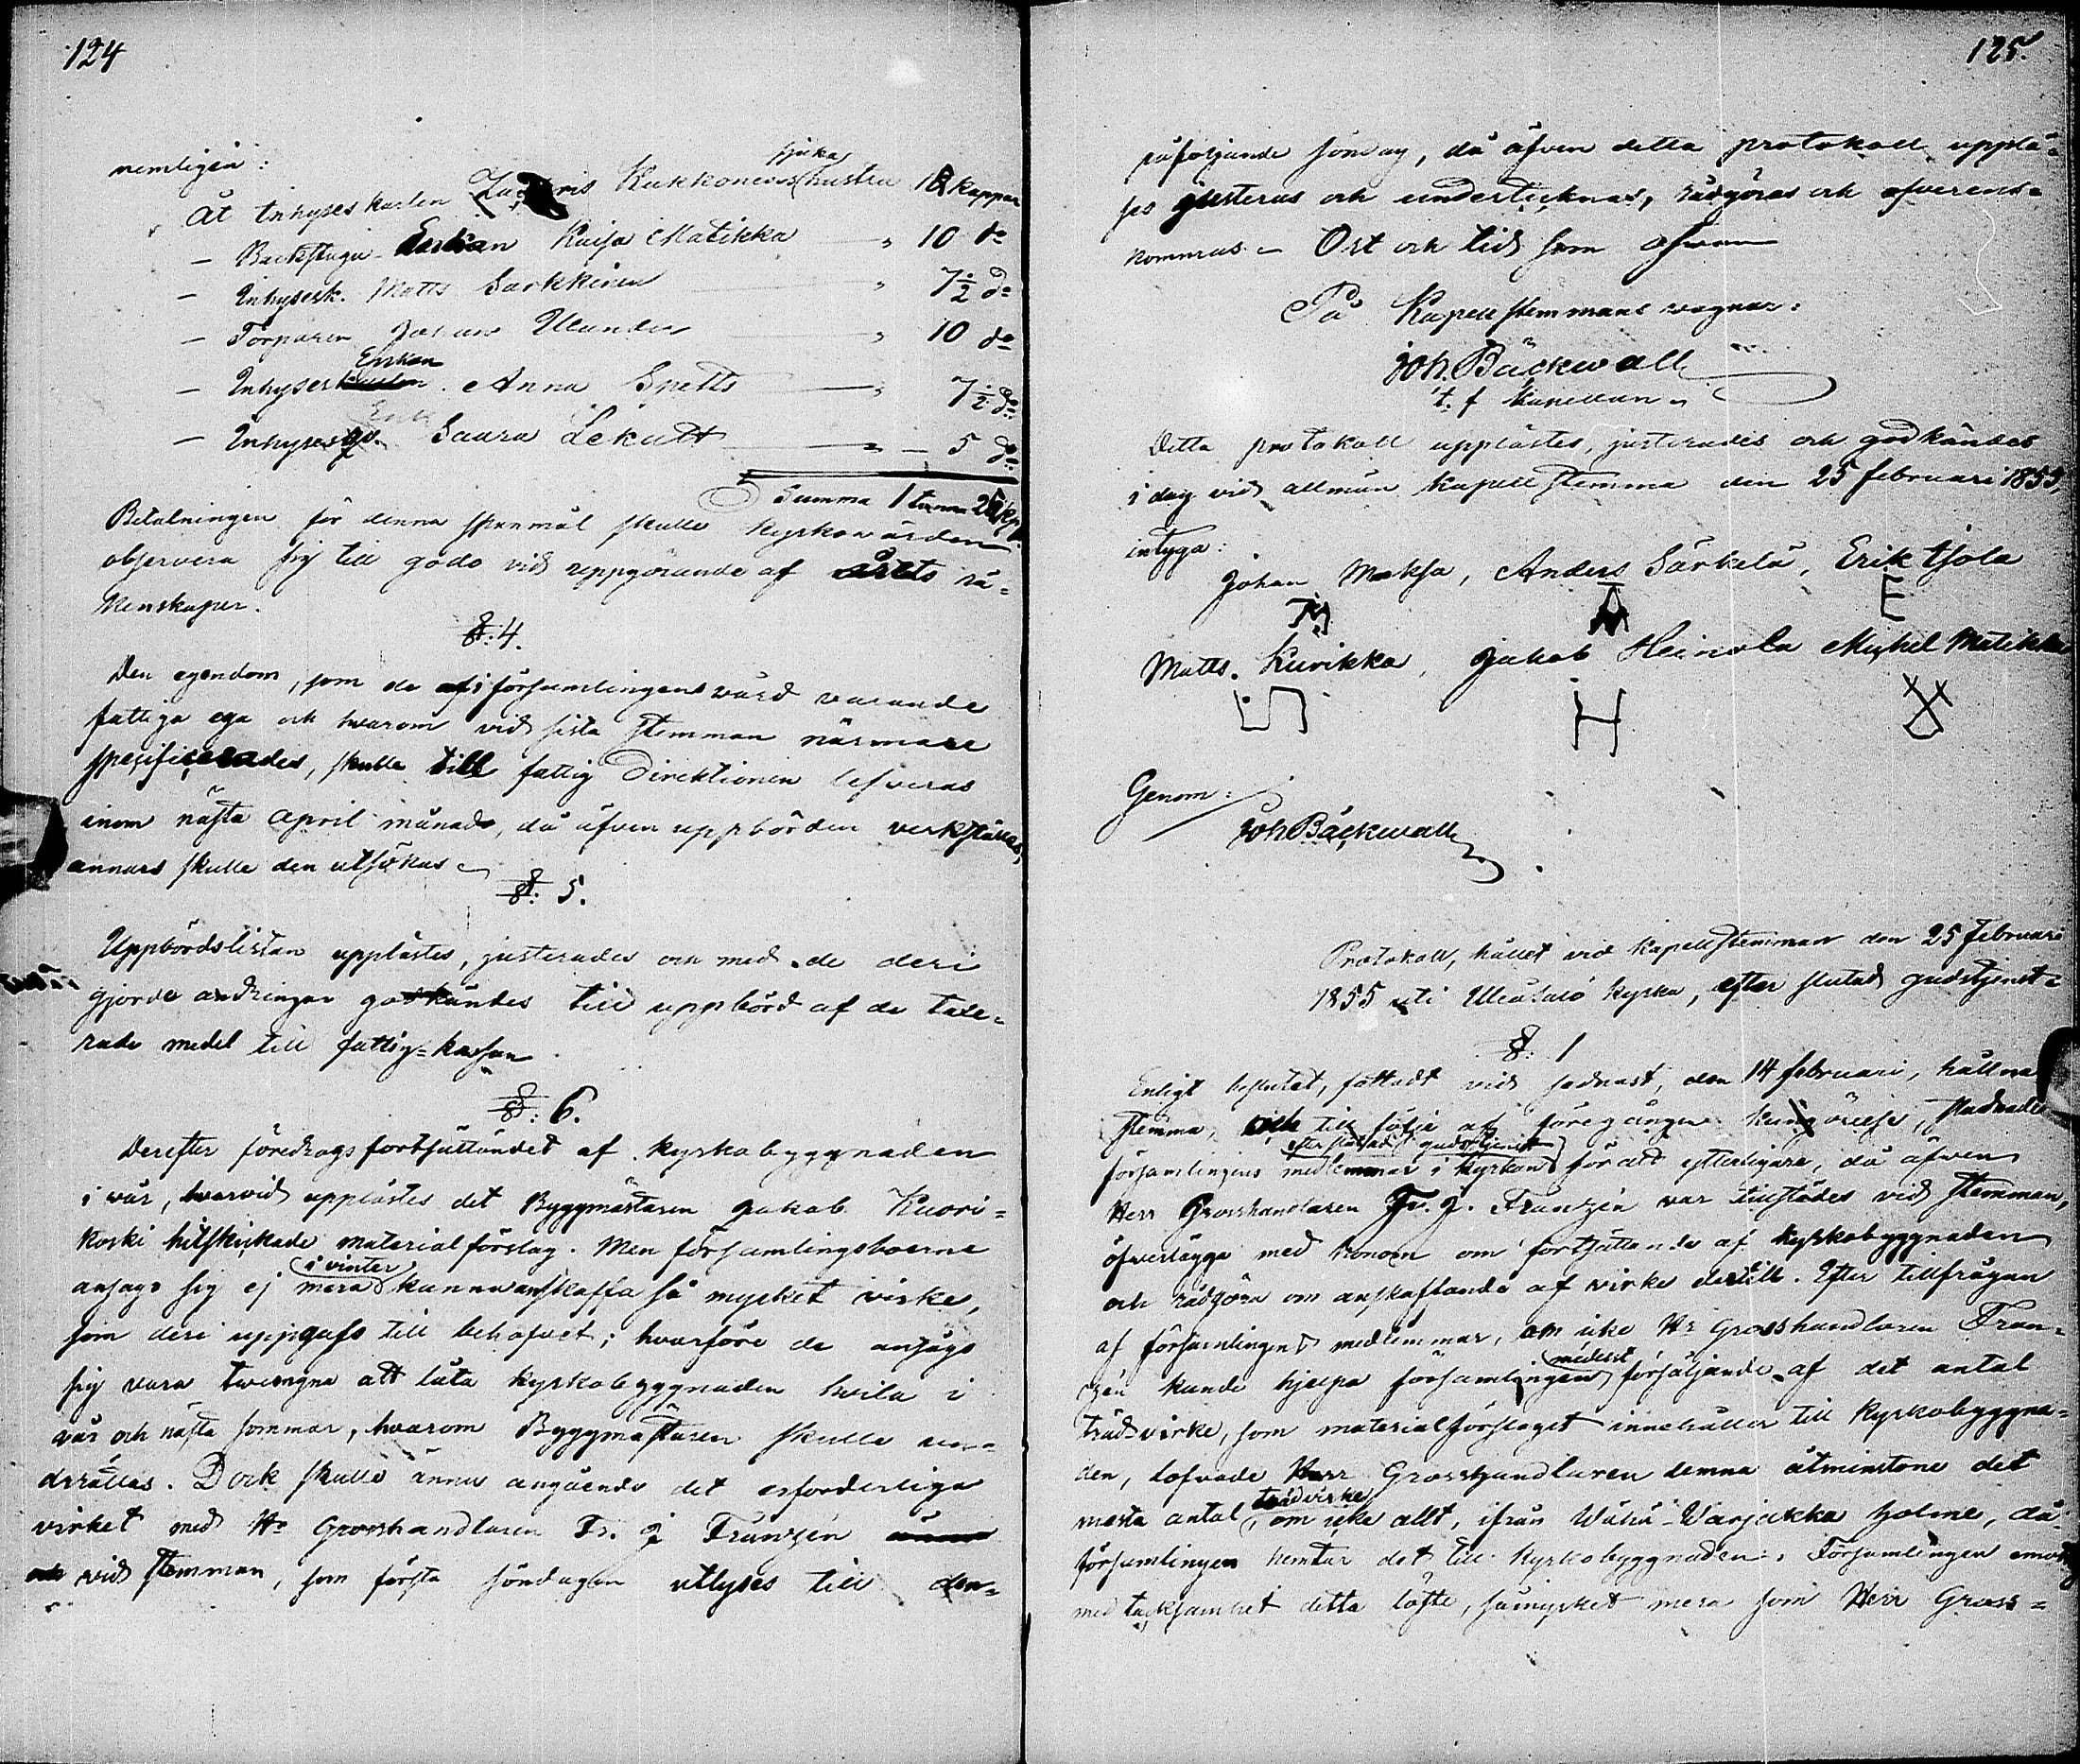 124
nemligen:
sjuka
Åt Inhyseskarlen Kukkonens hustru 1 kappar
— Backstugu Enkan Kaisa Matikka — „ 10 do
— Inhysesk. Matts Sarkkinen „ 7½ do
— Torparen Johan Ulander „ 10 do
Enkan
— Inhyses Anna Spetts — „ 7½ do
— Inhyses Saara Lekatt — „ — 5 do
Summa 1 tunna
Betalningen för denna spanmål skulle kyrkowärden
observera sig till godo vid uppgörande af årets rä-
kenskaper.
§. 4.
Den egendom, som de af i församlingens vård varande
fattiga ega och hvarom vid sista stemman närmare
specificerades, skulle till fattig Direktionen lefveras
inom nästa April månad, då äfven uppbörden verkställes,
annars skulle den utsökas
§. 5.
Uppbördslistan upplästes, justerades och med de deri
gjorde ändringar godkändes till uppbörd af de taxe-
rade medel till fattig-kassan
§. 6.
Derefter föredrogs fortsättandet af kyrkobyggnaden
i vår, hvarvid upplästes det Byggmästaren Jakob Kuori-
koski hitskickade materialförslag. Men församlingsboerne
i vinter
ansågo sig ej mera kunna anskaffa så mycket virke,
som deri uppgafs till behofvet; hvarföre de ansågo
sig vara twungna att låta kyrkobyggnaden hvila i
vår och nästa sommar, hvarom Byggmästaren skulle un-
derrättas. Dock skulle ännu angående det erforderliga
virket med Hr Grosshandlaren Fr. J Franzén
vid stemman, som första söndagen utlyses till den-
125.
påföljande söndag, då äfven detta protokoll upplä-
ses justeras och undertecknas, rådgöras och öfverens-
kommas. — Ort och tid som ofvan
På Kapellstemmans vägnar:
Joh. Bäckwall
t. f Kapellan
Detta protokoll upplästes, justerades och godkändes
i dag vid allmän kapellstemma den 25 februari 1855,
intyga:
Johan Moksa, Anders Särkelä, Erik Isola
E
Matts Kurikka, Jakob Heinola Michel Matikka
H
Genom:
Joh Bäckwall
Protokoll, hållet vid Kapellstemman den 25 februari
1855 uti Uleåsalo kyrka, efter slutad gudstjenst
§. 1
Enligt beslutet, fattadt vid sednast, den 14 februari, hållna
stemma, och till följe af föregången kungörelse, stadnade
efter slutad gudstjenst
församlingens medlemmar i kyrkan för att ytterligare, då äfven
Herr Grosshandlaren Fr. J. Franzén var tillstädes vid stemman,
öfverlägga med honom om fortsättande af kyrkobyggnaden
och rådgöra om anskaffande af virke dertill. Efter tillfrågan
af församlingens medlemmar, om icke Hr Grosshandlaren Fran-
medelst
zén kunde hjelpa församlingen försäljande af det antal
trädvirke, som materialförslaget innehåller till Kyrkobyggna-
den, lofvade Herr Grosshandlaren lemna åtminstone det
trädvirke
mesta antal, om icke allt, ifrån Wähä-Warjakka holme, då
församlingen hemtar det till kyrkobyggnaden. Församlingen emot
med tacksamhet detta löfte, såmycket mera som Herr Gross-